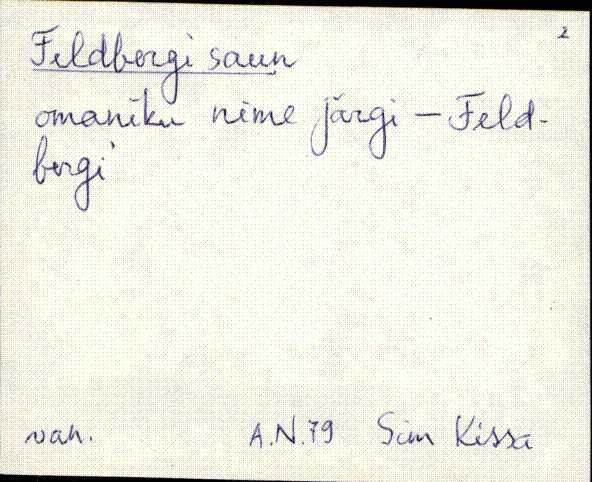 2
Feldbergi saun
omaniku nime järgi – Feld-
bergi
van. A.N.79 Siim Kissa